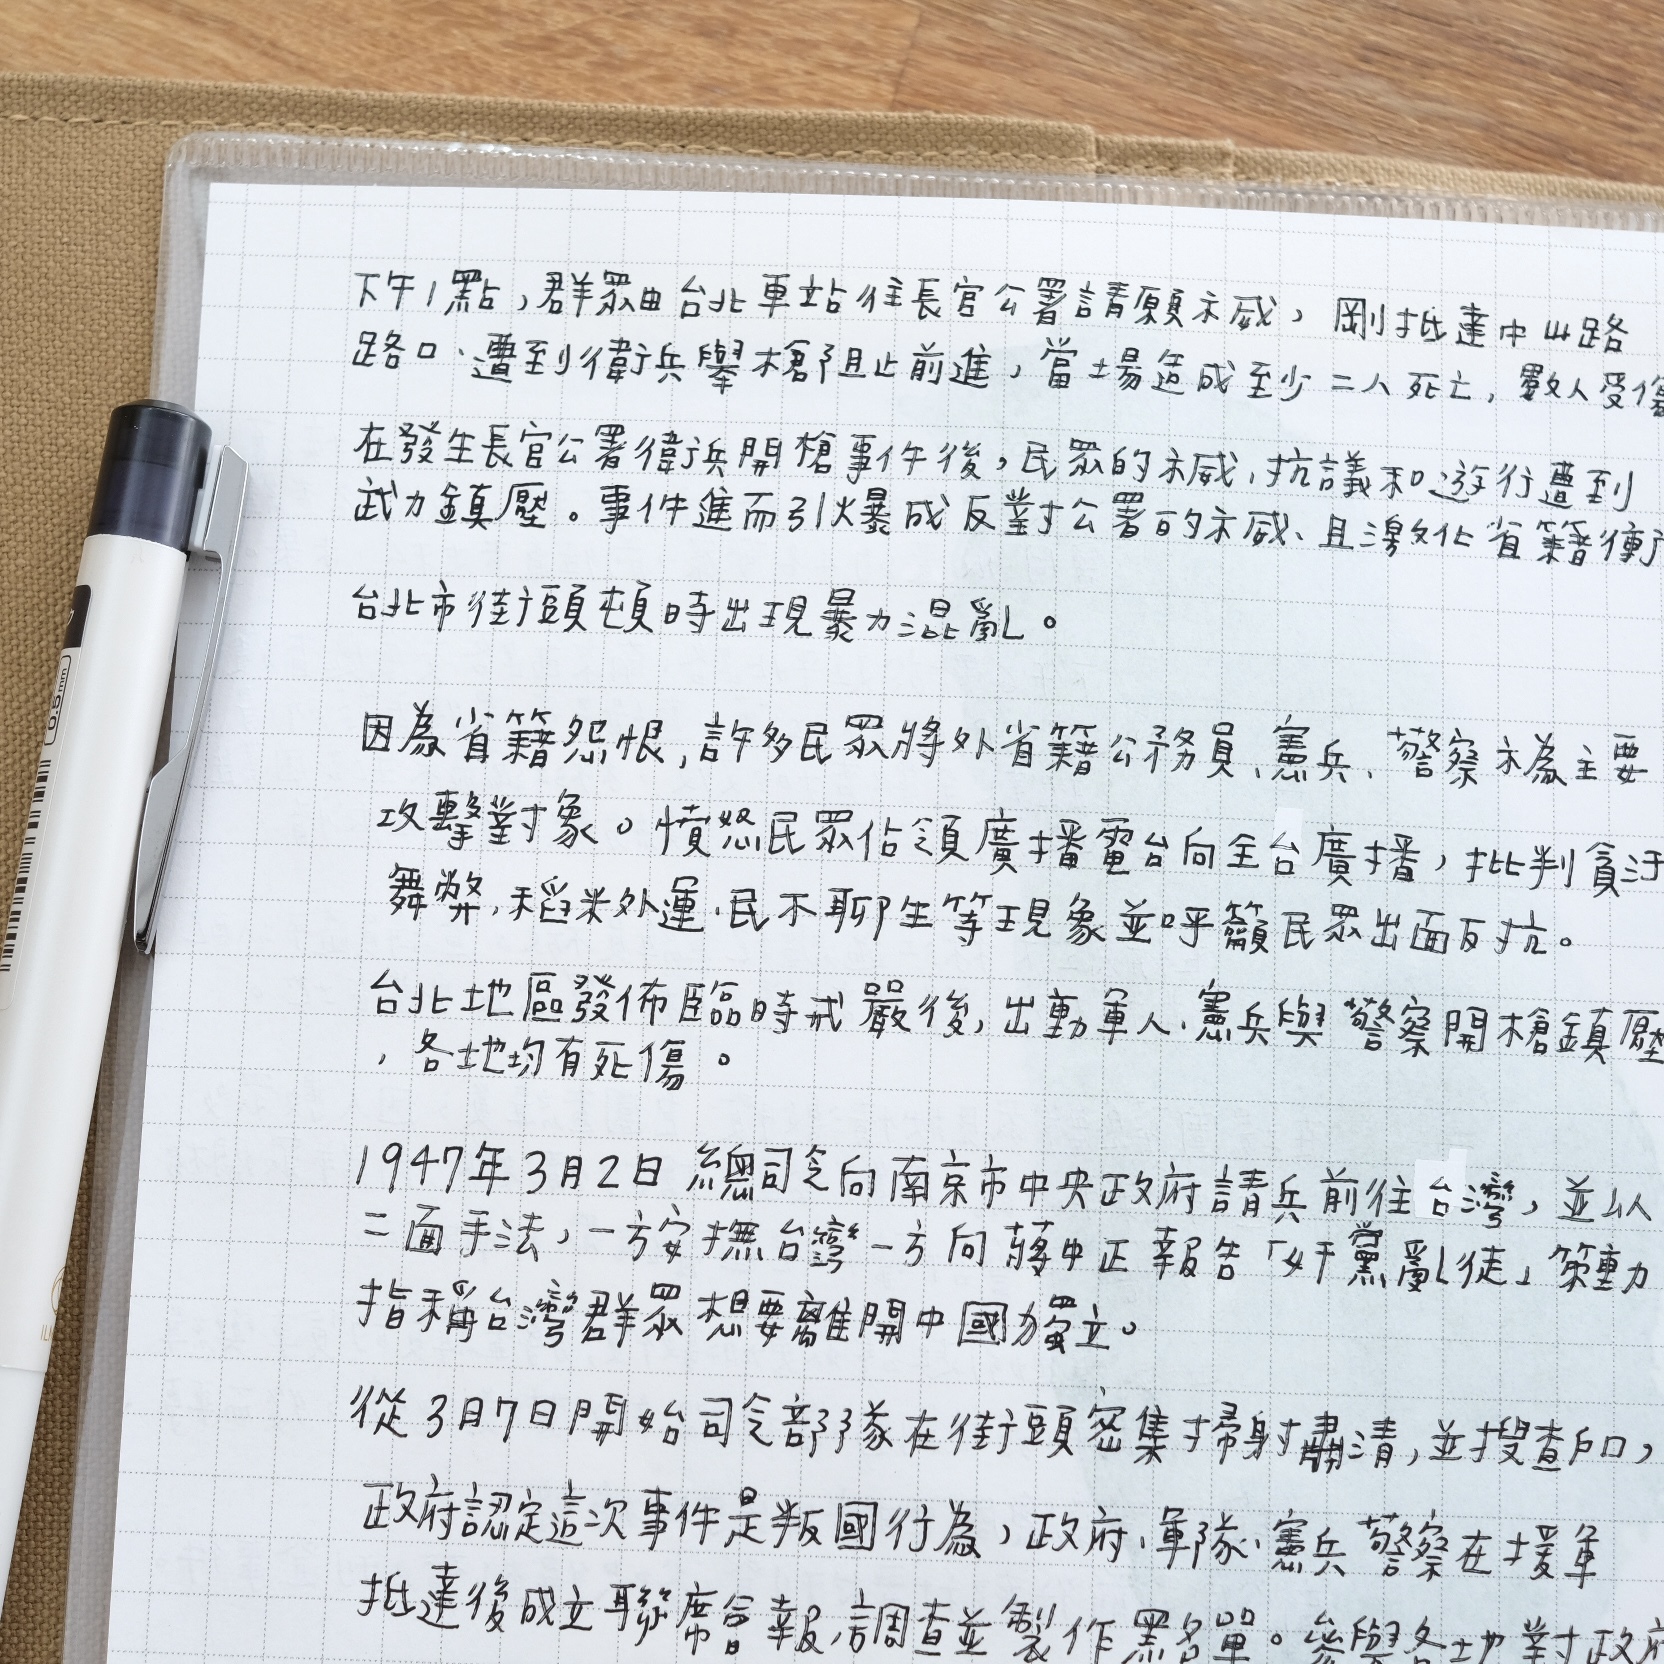 下午1點,群眾由台北車站往長官公署請願示威,剛抵達中山路
路口、遭到衛兵舉槍阻止前進,當場造成至少二人死亡,數人受傷
在發生長官公署衛兵開槍事件後,民眾的示威、抗議和遊行遭到
武力鎮壓。事件進而引爆成反對公署的示威、且激化省籍衝
台北市街頭頓時出現暴力混亂。
因為省籍怨恨,許多民眾將外省籍公務員、憲兵、警察示為主要
攻擊對象。憤怒民眾佔領廣播電台向全台廣播,批判貪汙
舞弊,稻米外運、民不聊生等現象並呼籲民眾出面反抗。
台北地區發佈臨時戒嚴後,出動軍人、憲兵與警察開槍鎮壓
,各地均有死傷。
1947年3月2日 總司令向南京市中央政府請兵前往台灣,並以
二面手法,一方安撫台灣一方向蔣中正報告「奸黨亂徒」策動
指稱台灣群眾想要離開中國獨立。
從3月7日開始司令部隊在街頭密集掃射肅清,並搜查戶口,
政府認定這次事件是叛國行為,政府、軍隊、憲兵警察在援軍
抵達後成立聯席會報,調查並製作黑名單。參與各地對政府
0.5mm